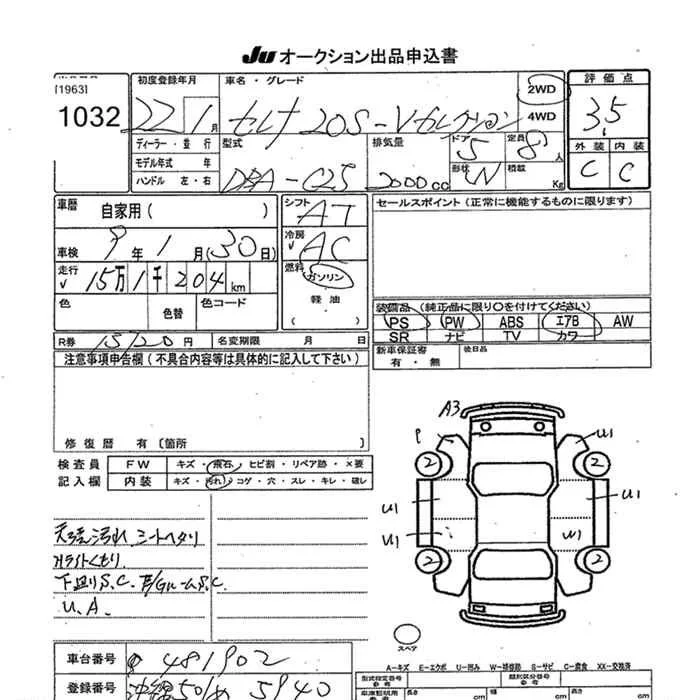 JU オークション出品申込書
[1963]
1032
初度登録年月
22 1月
車名・グレード
セレナ 20S-Vセレクション
2WD
4WD
評価点
3.5
ディーラー・並行
モデル年式 年
ハンドル 左・右
型式
DBA-C25
排気量
2000cc
ドア
5
定員
8人
形状
W
積載
Kg
外装 内装
C C
車歴
自家用( )
車検
9年1月(30日)
走行
15万1千204km
色
色替
色コード
シフト
AT
冷房
AC
燃料
ガソリン
軽油
セールスポイント(正常に機能するものに限ります)
装備品(純正品に限り○を付けてください)
PS PW ABS エアB AW
SR ナビ TV カワ
R券 15720円
名変期限 月 日
新車保証書
有・無
後日品
注意事項申告欄(不具合内容等は具体的に記入して下さい)
修復歴 有〔箇所 〕
検査員
記入欄
FW キズ・飛石・ヒビ割・リペア跡・×要
内装 キズ・汚れ・コゲ・穴・スレ・キレ・破レ
天張汚れ シートヘタリ
Hライトくもり
下廻りS.C.
U.A.
A3
P
U1
2
2
U1
U1
U1
W1
2
2
スペア
A-キズ E-エクボ U-凹み W-補修跡 S-サビ C-腐食 XX-交換済
車台番号
481902
登録番号
沖縄501ぬ5940
型式指定番号
参考
類別区分番号
参考
長さ
cm
幅
cm
高さ
cm